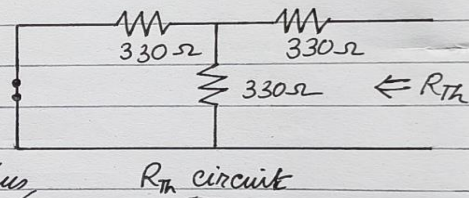 330Ω 330Ω
330Ω ⇐ R_Th
R_Th circuit